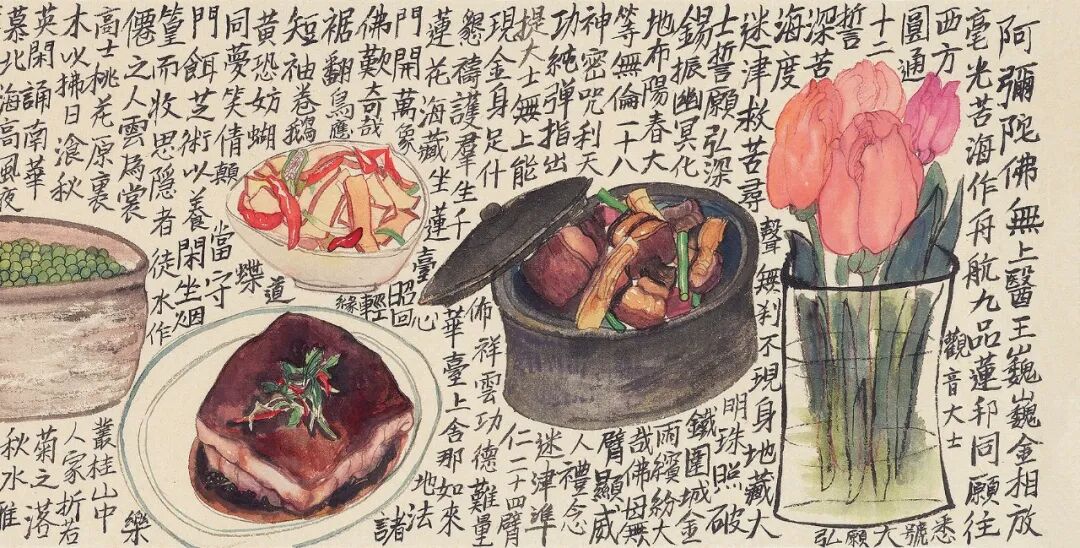 阿彌陀佛無上醫王巍巍金相放
毫光苦海作舟航九品蓮邦同願往
西方
觀音大士
悉號
圓通
十二
大願
誓
弘
深苦
海度
迷津救苦尋
聲無刹不現身地藏大
士誓願弘深
明珠照破
鐵圍城金
錫振幽冥化
雨繽紛大
地布陽春大
哉佛母無
等無倫一十八
臂顯威
神密咒利天
人禮念
功純彈指出
迷津準
提大士無上能
仁二十四臂
現金身足什
佈祥雲功德難量
懇禱護羣生千
華臺上舍那如來
蓮花海藏坐蓮
臺心
地法
門開萬象
昭回
諸
佛歎奇哉
裾翻烏應
輕
短袖卷鵝
緣
黃恐妨蝴
蝶道
同夢笑倩顛
當守
門餌芝術以養閑坐烟
篁而收思隱者徒水作
僊之人雲為裳
叢桂山中
樂
高士桃花原裏
人家折若
木以拂日飡秋
菊之落
英閑誦南華
秋水雅
慕北海高風夜